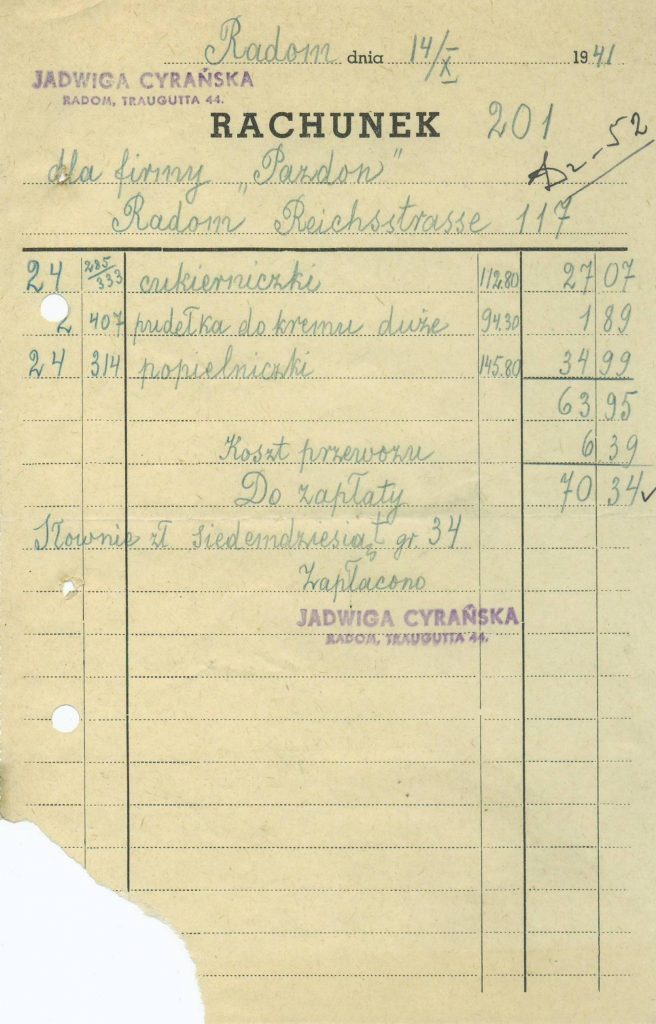 Radom dnia 14/X 1941
JADWIGA CYRAŃSKA
RADOM, TRAUGUTTA 44.
RACHUNEK 201
2-52
dla firmy „Pazdon"
Radom Reichsstrasse 117
24 285/333 cukierniczki 112.80 27 07
2 407 pudełka do kremu duże 94.30 1 89
24 314 popielniczki 145.80 34 99
63 95
Koszt przewozu 6 39
Do zapłaty 70 34
Słownie zł siedemdziesiąt gr. 34
Zapłacono
JADWIGA CYRAŃSKA
RADOM, TRAUGUTTA 44.